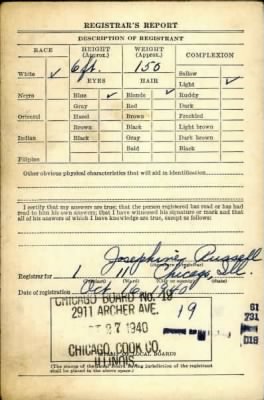 REGISTRAR'S REPORT
DESCRIPTION OF REGISTRANT
RACE HEIGHT (Approx.) WEIGHT (Approx.) COMPLEXION
6 ft. 150 Sallow
White ✓ EYES HAIR Light ✓
Negro Blue ✓ Blonde ✓ Ruddy
Gray Red Dark
Oriental Hazel Brown Freckled
Brown Black Light brown
Indian Black Gray Dark brown
Bald Black
Filipino
Other obvious physical characteristics that will aid in identification
I certify that my answers are true; that the person registered has read or has had
read to him his own answers; that I have witnessed his signature or mark and that
all of his answers of which I have knowledge are true, except as follows:
Josephine Russell
Registrar for 1 11 Chicago, Ill.
(Precinct) (Ward) (City or county) (State)
Date of registration Oct 16, 1940
CHICAGO BOARD NO. 19
2911 ARCHER AVE.
19
OCT 27 1940
CHICAGO, COOK CO.
ILLINOIS.
(STAMP OF LOCAL BOARD)
(The stamp of the Local Board having jurisdiction of the registrant
shall be placed in the above space.)